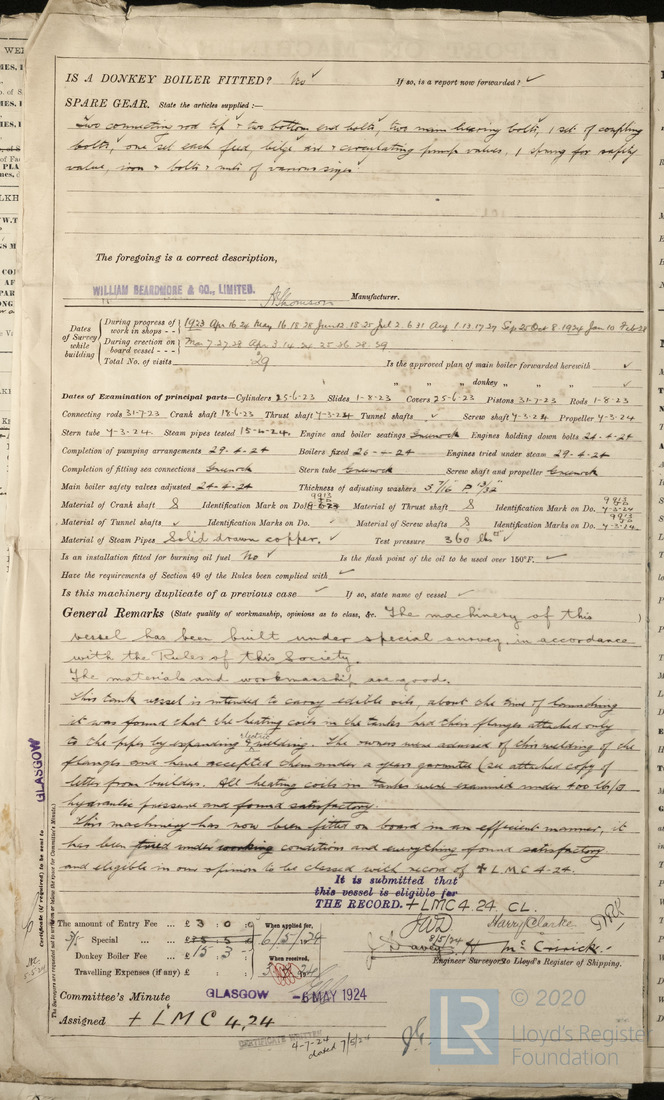 IS A DONKEY BOILER FITTED? No ✓ If so, is a report now forwarded? ✓
SPARE GEAR. State the articles supplied:—
Two connecting rod top & two bottom end bolts, two main bearing bolts, 1 set of coupling
bolts, one set each feed, bilge air & circulating pump valves, 1 spring for safety
valve, iron & bolts & nuts of various sizes
The foregoing is a correct description,
WILLIAM BEARDMORE & CO., LIMITED.
Manufacturer.
Dates of Survey while building
During progress of work in shops - - 1923 Apr 16 24 May 16 18 25 Jun 12 18 25 Jul 2. 6 31 Aug 1. 13. 17 27 Sep 20 Oct 8. 1924 Jan 10 Feb 28
During erection on board vessel - - - Mar 7. 27. 28 Apr 3 14 24 25 26 28. 29
Total No. of visits 29 Is the approved plan of main boiler forwarded herewith ✓
" " " donkey " " ✓
Dates of Examination of principal parts—Cylinders 25-6-23 Slides 1-8-23 Covers 25-6-23 Pistons 31-7-23 Rods 1-8-23
Connecting rods 31-7-23 Crank shaft 18-6-23 Thrust shaft 7-3-24 Tunnel shafts ✓ Screw shaft 7-3-24 Propeller 7-3-24
Stern tube 7-3-24 Steam pipes tested 15-4-24. Engine and boiler seatings Greenock Engines holding down bolts 24-4-24
Completion of pumping arrangements 29-4-24 Boilers fixed 26-4-24 Engines tried under steam 29-4-24
Completion of fitting sea connections Greenock Stern tube Greenock Screw shaft and propeller Greenock
Main boiler safety valves adjusted 24-4-24 Thickness of adjusting washers S 7/16 P 13/32
Material of Crank shaft S Identification Mark on Do. 9913 Material of Thrust shaft S Identification Mark on Do. 9913 7-3-24
Material of Tunnel shafts ✓ Identification Marks on Do. ✓ Material of Screw shafts S Identification Marks on Do. 9913 7-3-24.
Material of Steam Pipes Solid drawn copper. ✓ Test pressure 360 lbs ✓
Is an installation fitted for burning oil fuel No ✓ Is the flash point of the oil to be used over 150°F. ✓
Have the requirements of Section 49 of the Rules been complied with ✓
Is this machinery duplicate of a previous case ✓ If so, state name of vessel ✓
General Remarks (State quality of workmanship, opinions as to class, &c. The machinery of this
vessel has been built under special survey, in accordance
with the Rules of this Society.
The materials and workmanship are good.
This tank vessel is intended to carry edible oils, about the time of launching
it was found that the heating coils in the tanks had their flanges attached only
to the pipes by expanding & welding. The owners were advised of this welding of the
flanges and have accepted them under a years guarantee (see attached copy of
letter from builders. All heating coils in tanks were examined under 400 lb/□
hydraulic pressure and found satisfactory.
This machinery has now been fitted on board in an efficient manner, it
has been tried under working conditions and everything found satisfactory
and eligible in our opinion to be classed with record of + LMC 4-24.
It is submitted that
this vessel is eligible for
THE RECORD. + LMC 4.24 CL.
JWD 8/5/24
Harry Clarke
Engineer Surveyor to Lloyd's Register of Shipping.
The amount of Entry Fee ... £ 3 : 0 : 0
Special ... £
Donkey Boiler Fee ... £
Travelling Expenses (if any) £
When applied for, 6/5/24
When received,
Committee's Minute GLASGOW -6 MAY 1924
Assigned + LMC 4,24
CERTIFICATE WRITTEN
4-7-24
dated 7/5/24
GLASGOW
Certificate (if required) to be sent to
The Surveyors are requested not to write on or below the space for Committee's Minute.
LR
© 2020
Lloyd's Register
Foundation